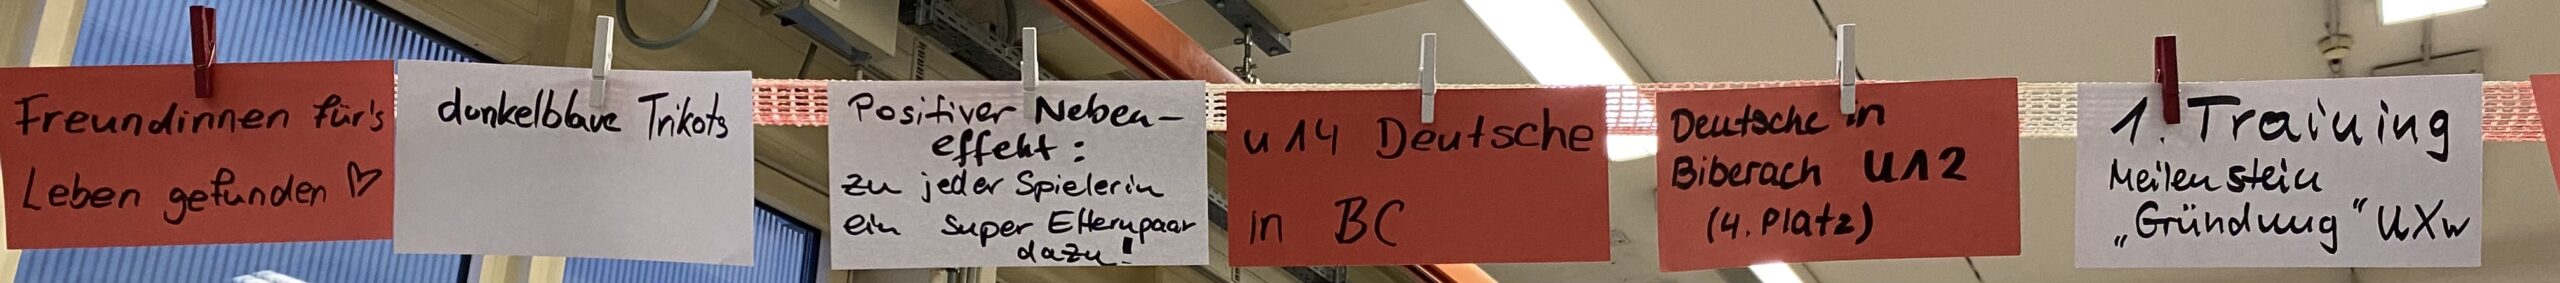 Freundinnen für's
Leben gefunden ♡
dunkelblaue Trikots
Positiver Neben-
effekt:
zu jeder Spielerin
ein super Elternpaar
dazu!
u 14 Deutsche
in BC
Deutsche in
Biberach U12
(4. Platz)
1. Training
Meilenstein
„Gründung“ UXw